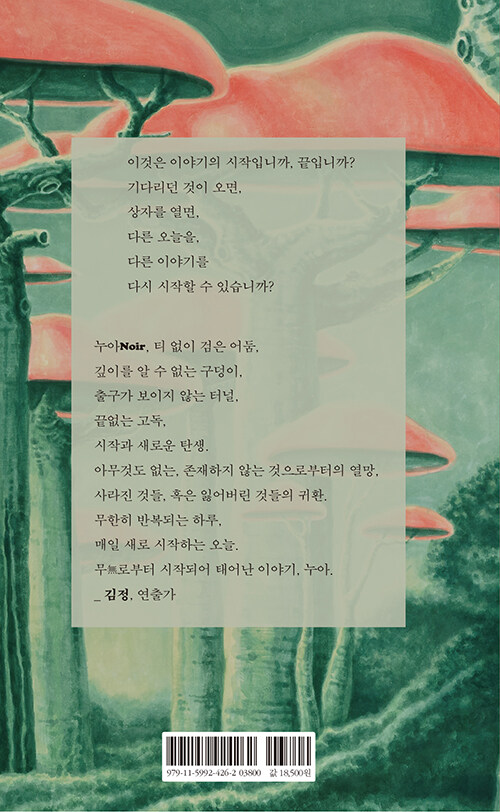 이것은 이야기의 시작입니까, 끝입니까?
기다리던 것이 오면,
상자를 열면,
다른 오늘을,
다른 이야기를
다시 시작할 수 있습니까?
누아Noir, 티 없이 검은 어둠,
깊이를 알 수 없는 구덩이,
출구가 보이지 않는 터널,
끝없는 고독,
시작과 새로운 탄생.
아무것도 없는, 존재하지 않는 것으로부터의 열망,
사라진 것들, 혹은 잃어버린 것들의 귀환.
무한히 반복되는 하루,
매일 새로 시작하는 오늘.
무無로부터 시작되어 태어난 이야기, 누아.
_ 김정, 연출가
979-11-5992-426-2 03800 값 18,500원